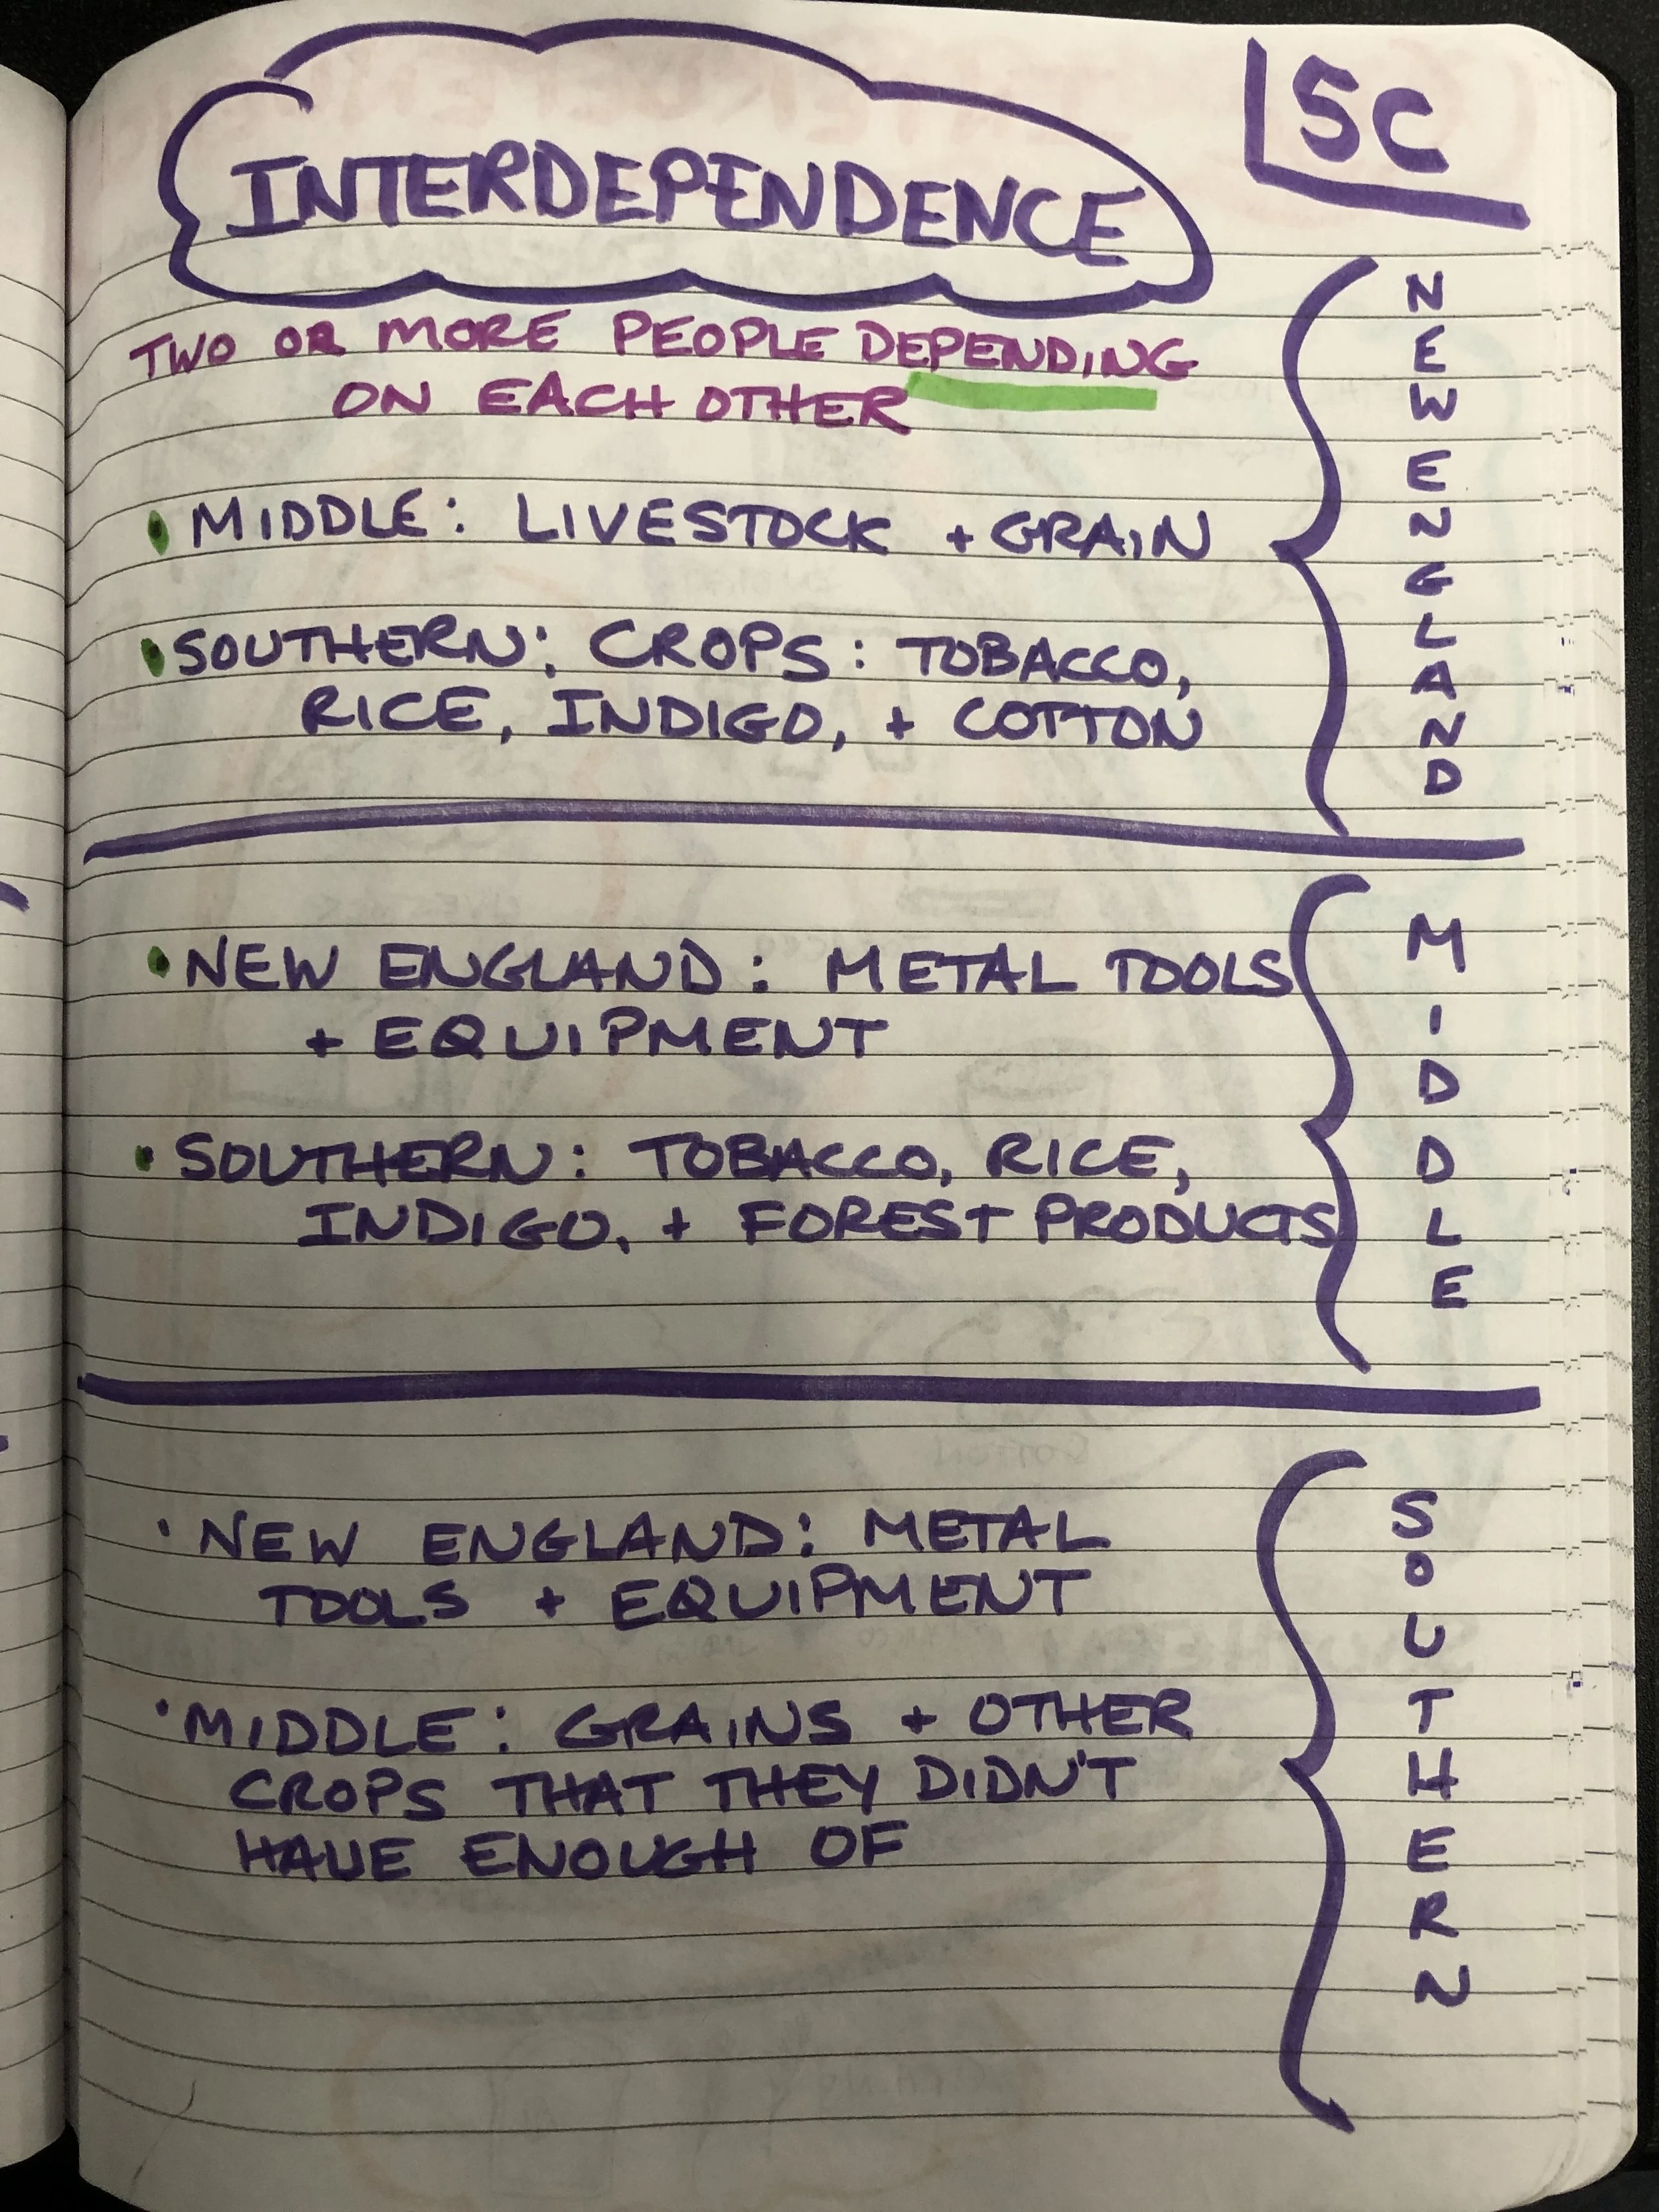 INTERDEPENDENCE
5C
TWO OR MORE PEOPLE DEPENDING
ON EACH OTHER
NEW ENGLAND
• MIDDLE: LIVESTOCK + GRAIN
• SOUTHERN: CROPS: TOBACCO,
RICE, INDIGO, + COTTON
MIDDLE
• NEW ENGLAND: METAL TOOLS
+ EQUIPMENT
• SOUTHERN: TOBACCO, RICE,
INDIGO, + FOREST PRODUCTS
SOUTHERN
• NEW ENGLAND: METAL
TOOLS + EQUIPMENT
• MIDDLE: GRAINS + OTHER
CROPS THAT THEY DIDN'T
HAVE ENOUGH OF